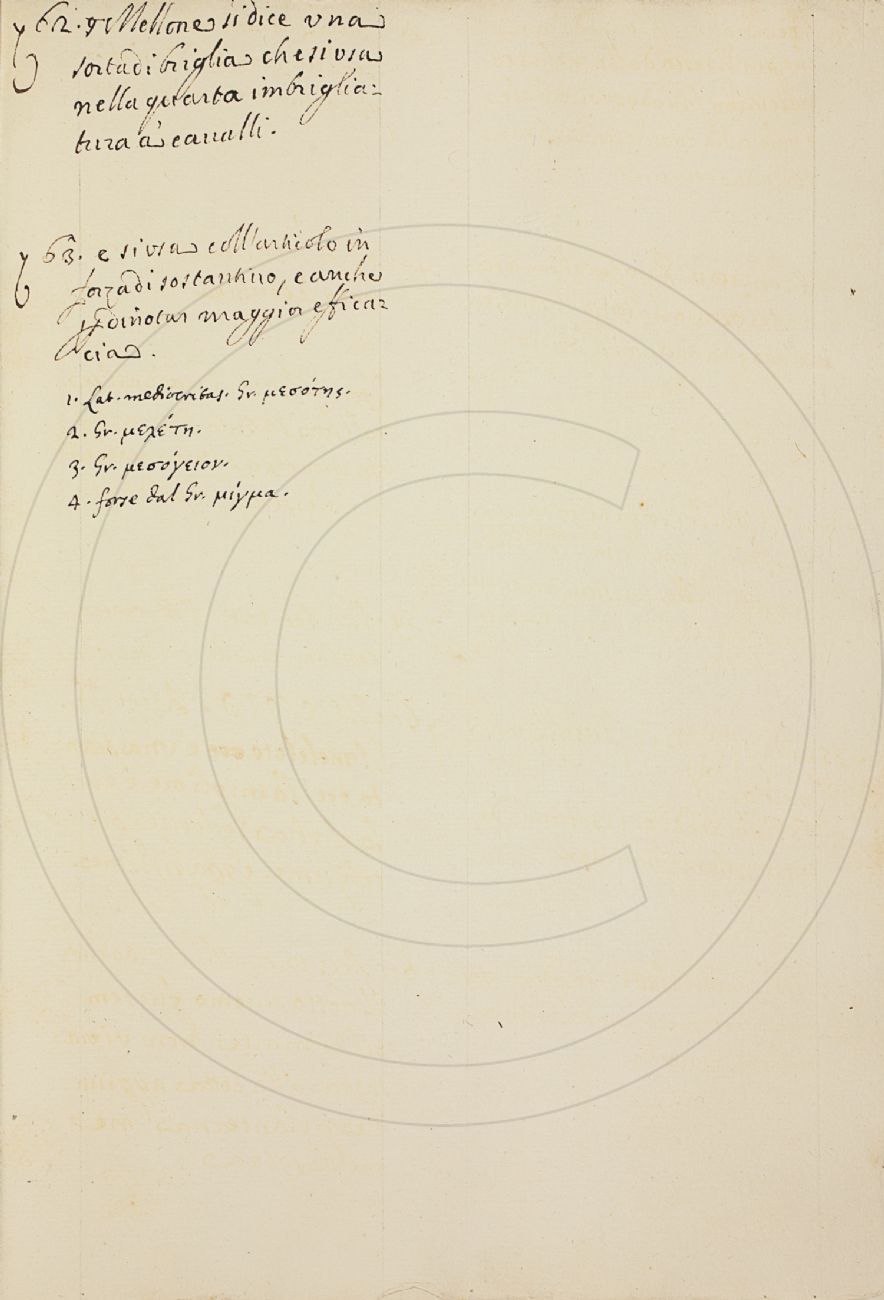 62. ¶ Mellone si dice vna
sorta di briglia che si vsa
nella quarta imbriglia-
tura a' caualli.
63. e si vsa coll'articolo in
forza di sostantiuo, e anche
p dinotar maggior effica-
cia.
1. Lat. mediocritas. Gr. μεσότης.
2. Gr. μελέτη.
3. Gr. μεσόγειον.
4. forse dal Gr. μίγμα.